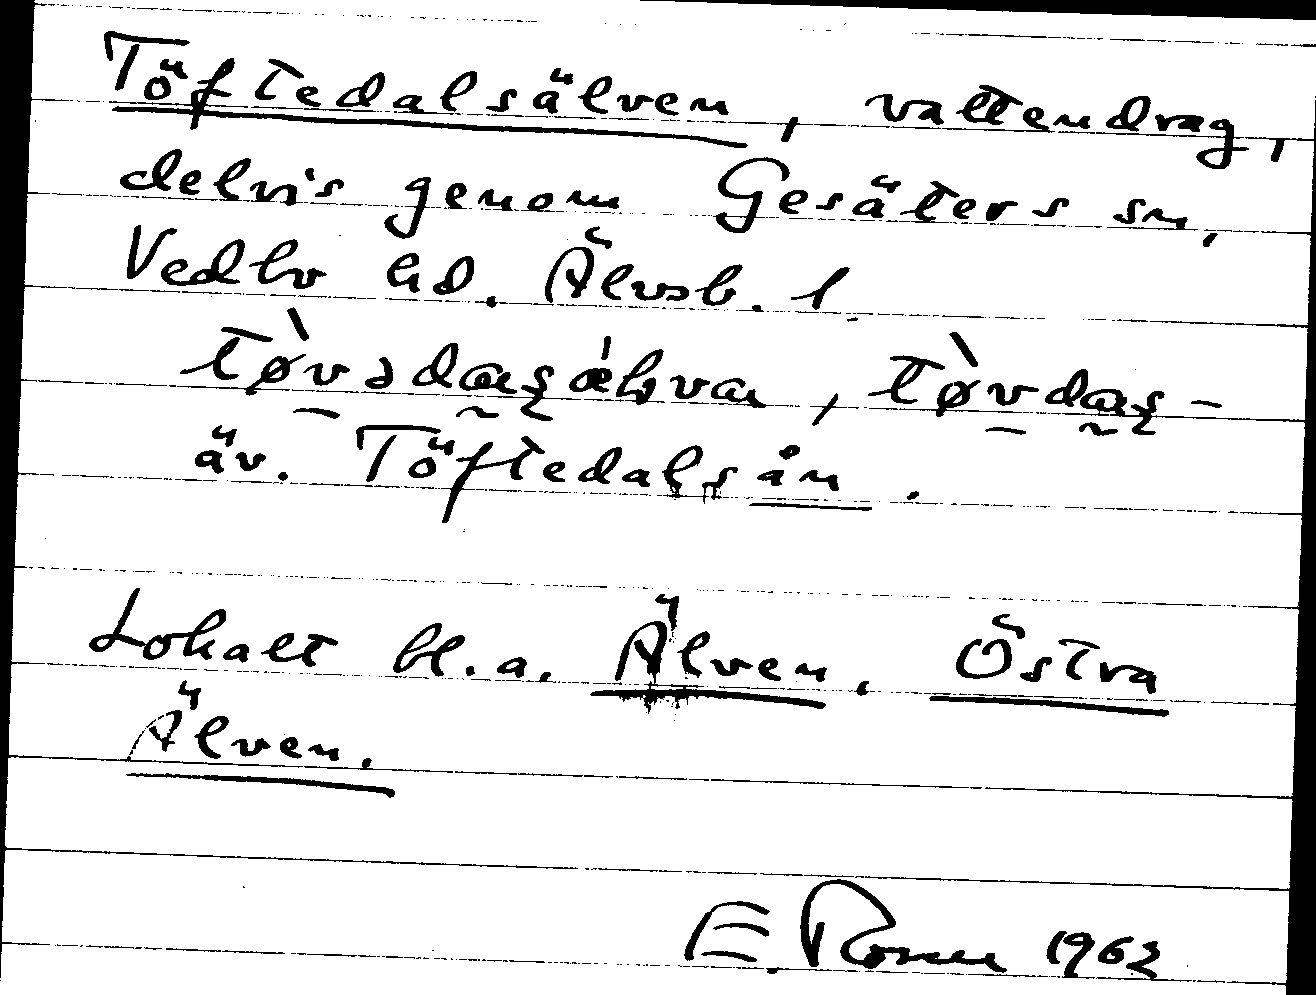 Töftedalsälven, vattendrag,
delvis genom Gesäters sn,
Vedbo hd. Älvsb. l.
tø̀vədaʂæ̀lvan, tø̀vdaʂ-
äv. Töftedalsån.
Lokalt bl.a. Älven. Östra
Älven.
E. 1962